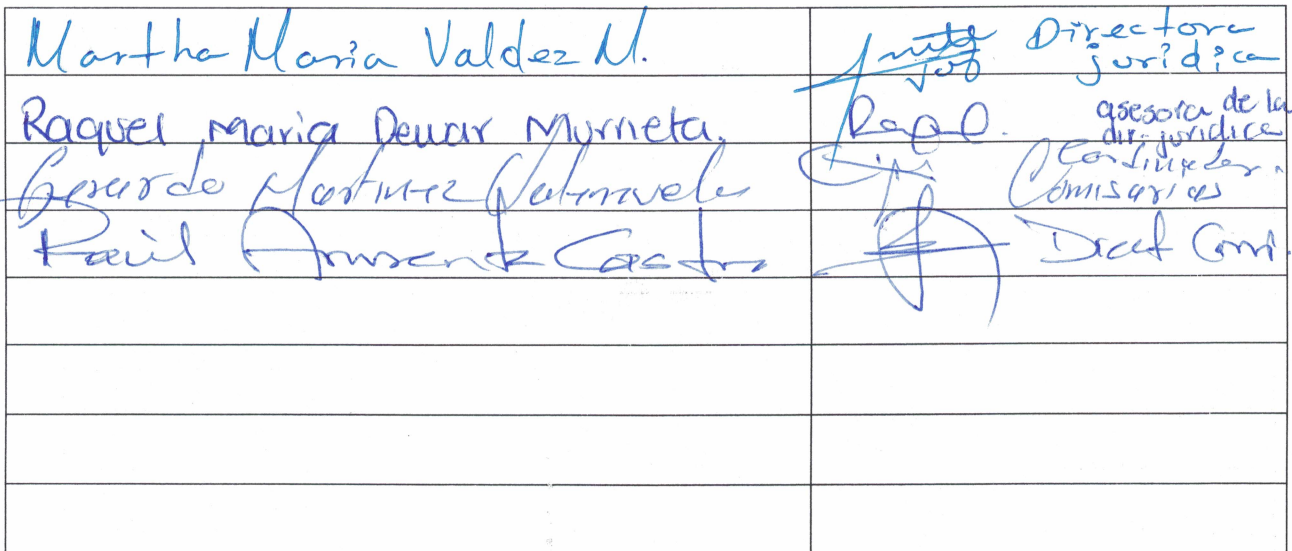 Martha Maria Valdez M. Directora
juridica
Raquel Maria Dewar Murrieta. asesora de la
dir. juridica
Gerardo Martinez Valenzuela Coordinador
Comisarias
Raúl Armenta Castro